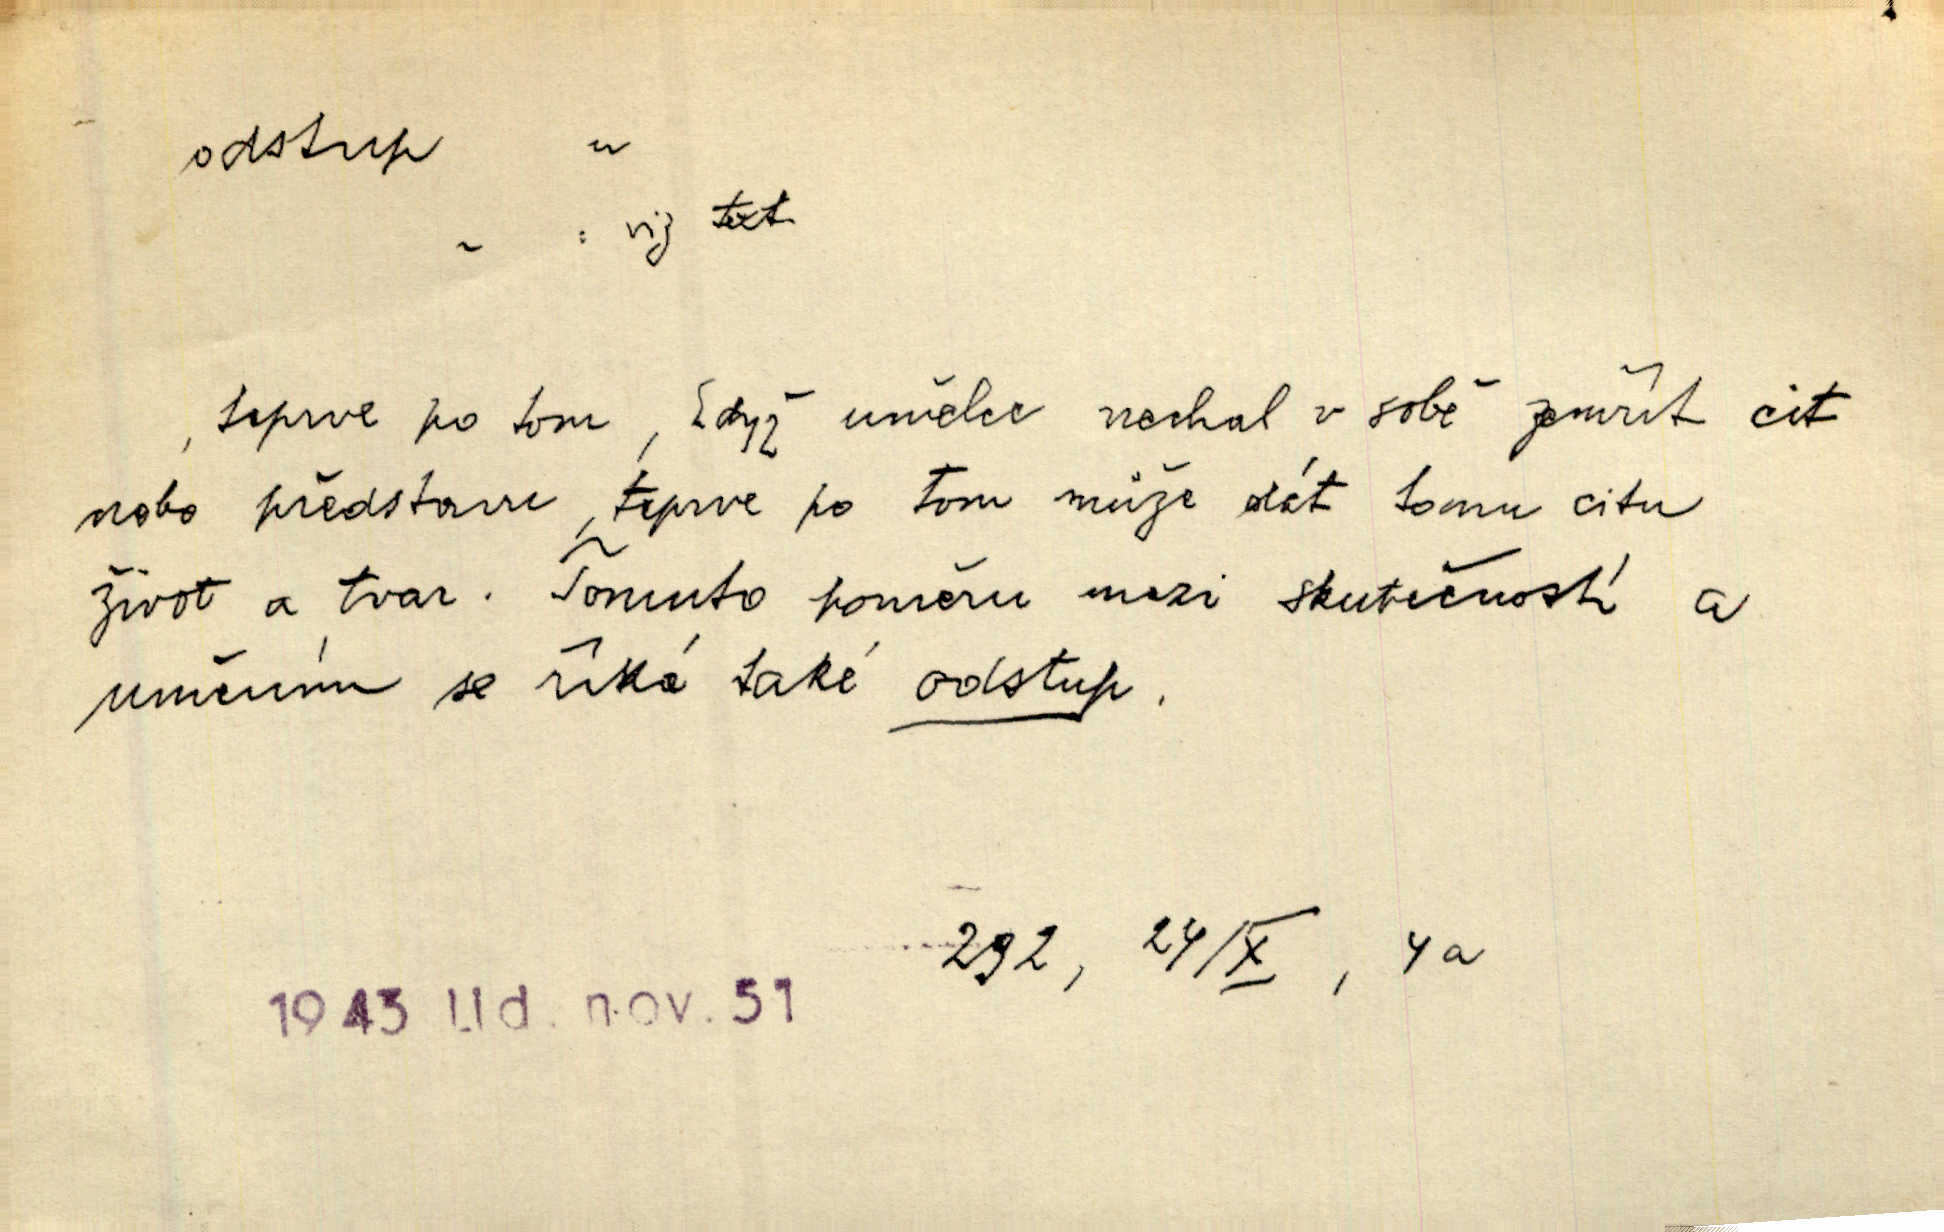 odstup u
~ : viz text
, teprve po tom, když umělec nechal v sobě zemřít cit
nebo představu, teprve po tom může dát tomu citu
život a tvar. Tomuto poměru mezi skutečností a
uměním se říká také odstup.
292, 24/IX, 4a
1943 Lid. nov. 51